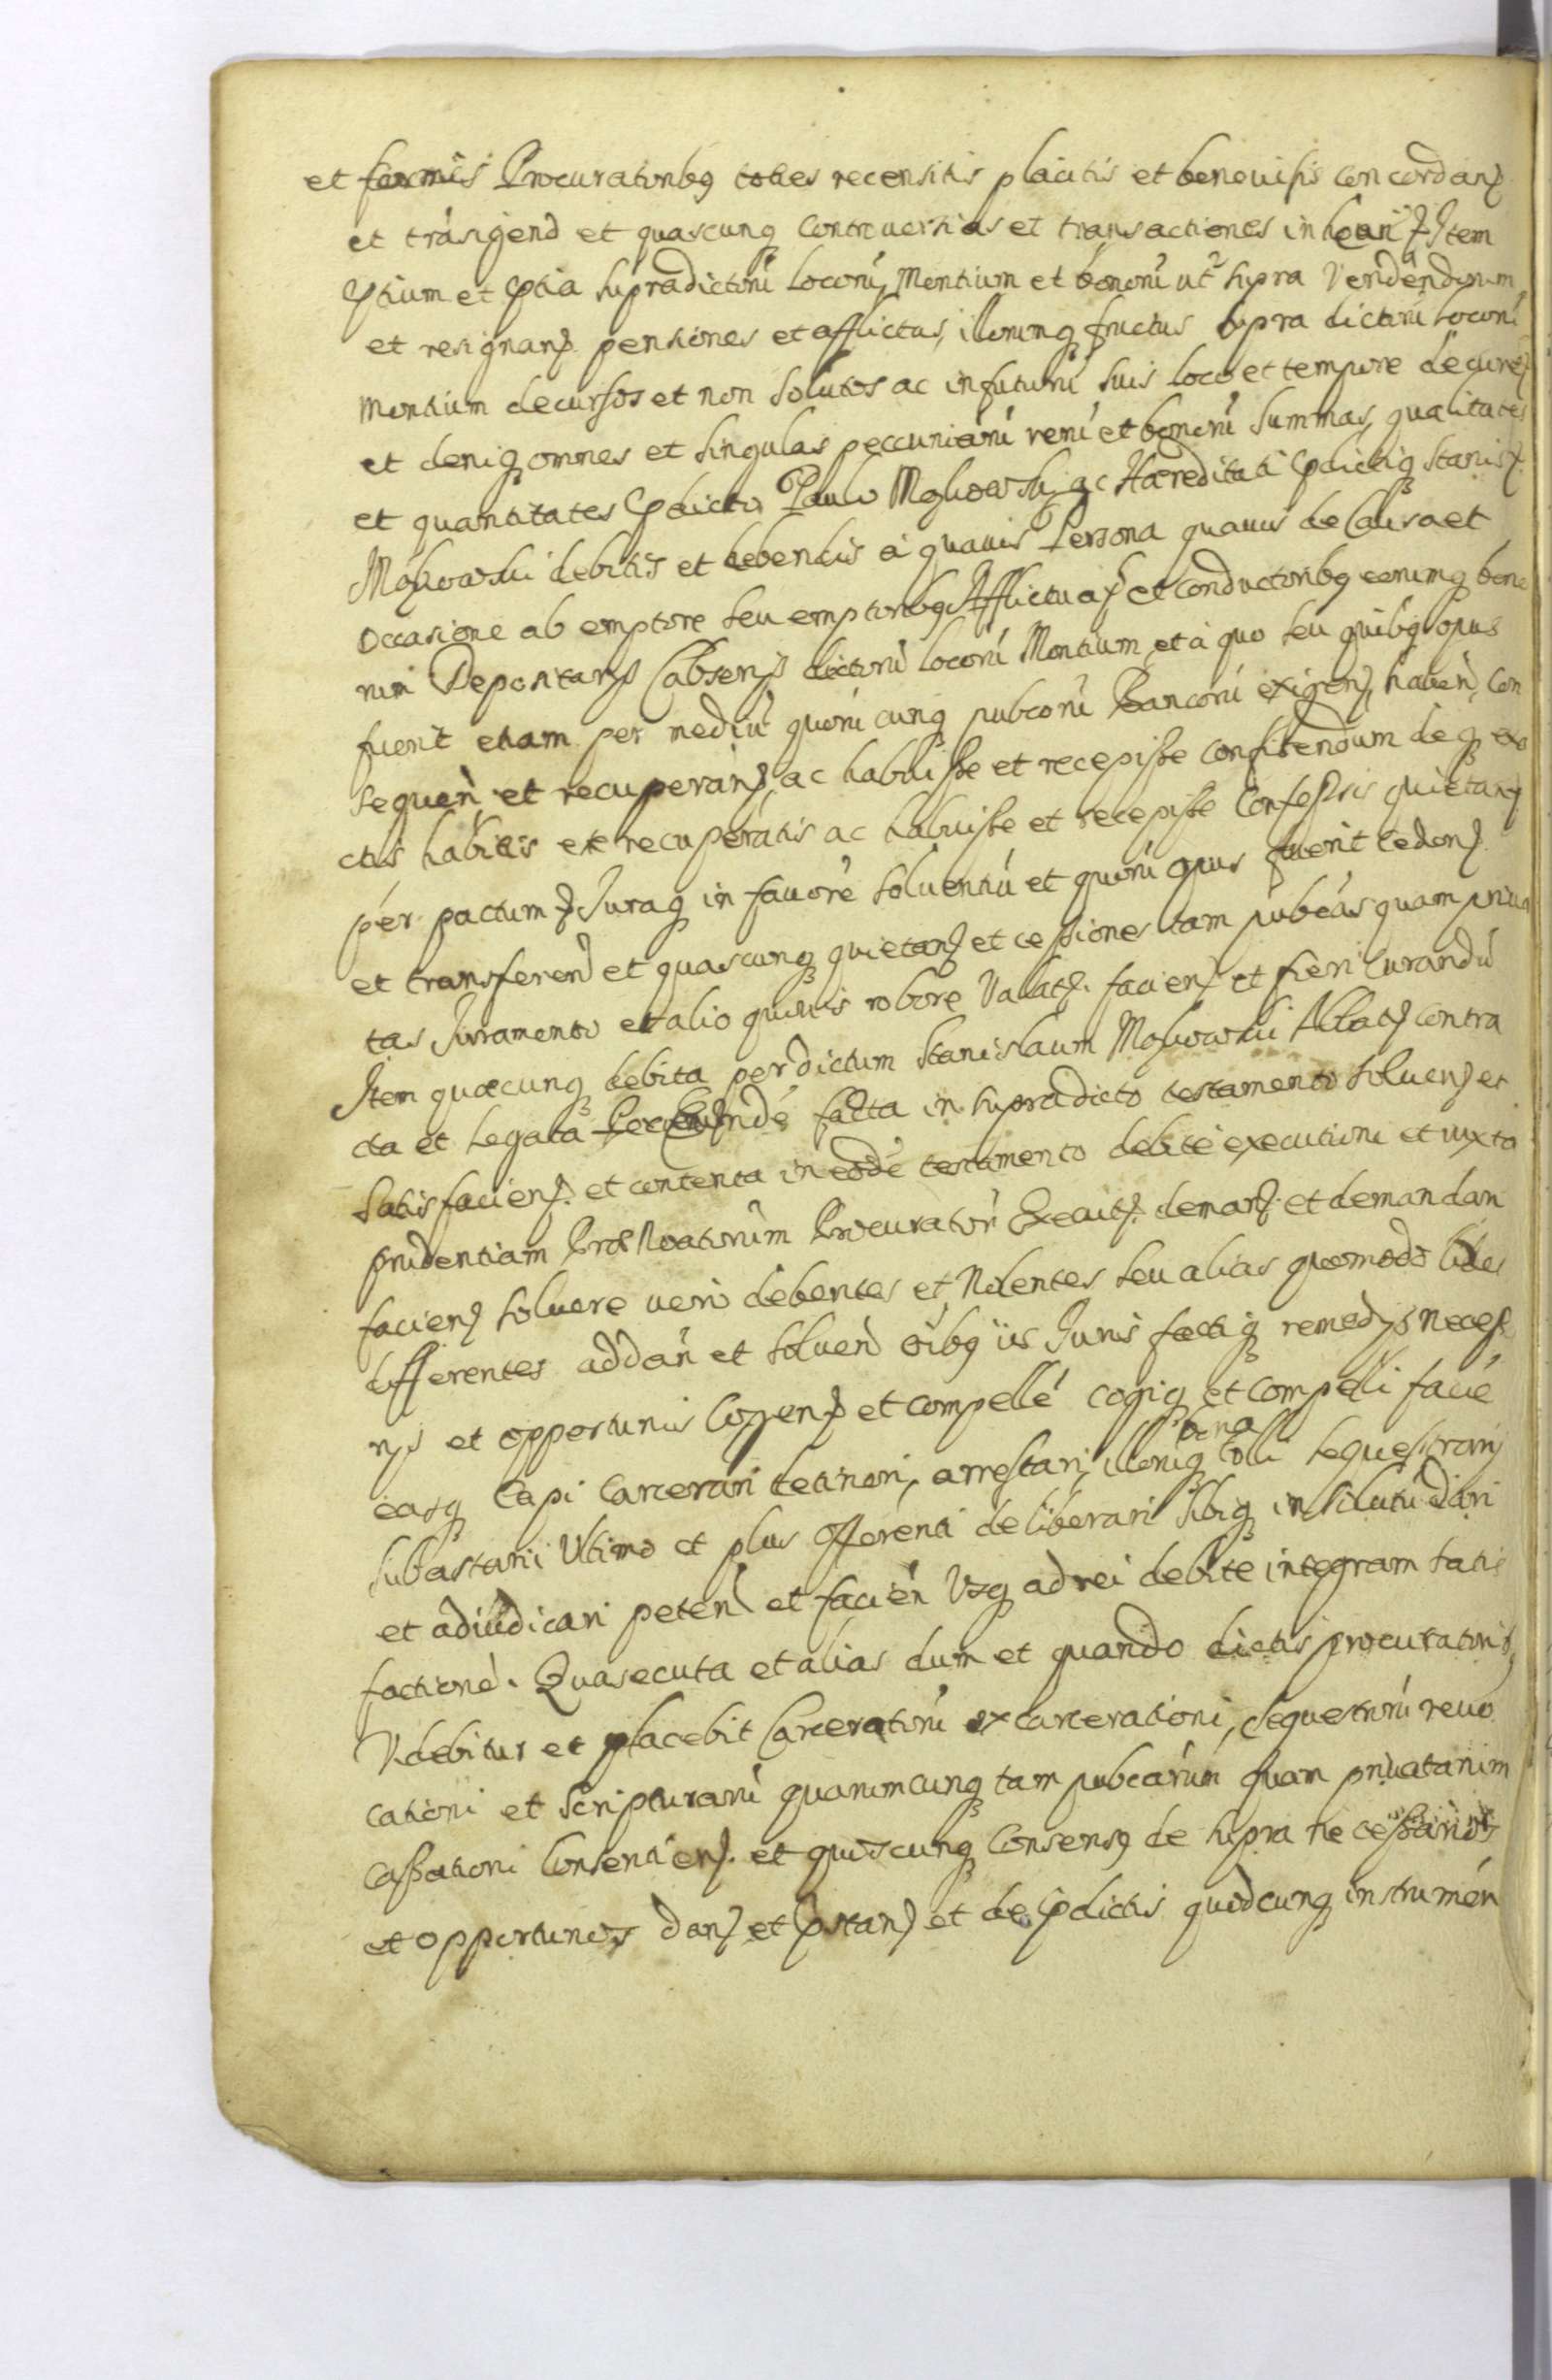 et formis Procuratoribq toties recensitis placitis et beneuisis concordanz
et trãsigend et quascunq controuersias et transactiones ineun z Item
ptium et ptia supradictorũ locorũ Montium et bonorũ ut supra Vendendorum
et resignanz pensiones et afflictus, illorumq fructus supra dictorũ locorũ
Montium decursos et non solutos ac in futurũ suis loco et tempore decurrez
et deniq omnes et singulas peccuniarũ rerũ et bonorũ summas, qualitates
et quantitates pdicto Paulo Makowski ac Hæreditati pdictiq Stanisz
Makowski debitis et debendis á quauis Persona quauis de causa et
occasione ab emptore seu emptoribq Afflictuaz et conductoribq eorumq bono
rum Depositarys Cabsenz dictorũ locorũ Montium et à quo seu quibq opus
fuerit etiam per mediũ quorũ cunq pubcorũ Bancorũ exigenz, haben, con
sequen et recuperanz, ac habuisse et recepisse confitendum deq exa
ctis habitis et recuperatis ac habuisse et recepisse Confessis quietanz
per pactum z Juraq in fauorẽ soluentiũ et quorũ opus fuerit cedenz
et transferend et quascunq quietanz et cessiones tam pubcas quam priua
tas Juramento et alio quouis robore Vallatz. facienz et fieri Curandũ
Item quæcunq debita per dictum Stanislaum Makowski Allatz contra
cta et legata Per Eundẽ facta in supradicto testamento soluenz et
satisfacienz. et contenta in eodẽ testamento debitẽ executioni et iuxta
prudentiam Procuratorũ Executz. demanz. et demandan
facienz soluere uero debentes et Nolentes seu alias quomodo libet
differentes ad dan et soluen oĩbq iis Juris factiq remedys necess
rys et opportunis Cogenz et compellẽ cogiq et compelli faciẽ
easq Capi Carcerari detineri, arrestari, illoruq bona tolli sequestrari
subastari Ultimo et plus offerenti deliberari sibiq in solutũ dari
et adiudicari peten et facien Usq ad rei debite integram satis
factionẽ. Qua secuta et alias dum et quando dictis procuratorib
Videbitur et placebit Carceratorũ excarcerationi, sequestrorũ reuo
cationi et scripturarũ quarumcunq tam pubcarum quam priuatarum
Cassationi Consentienz. et quoscunq Consensq de supra necessarios
et opportunos danz et pstanz et de pdictis quodcunq instrumen